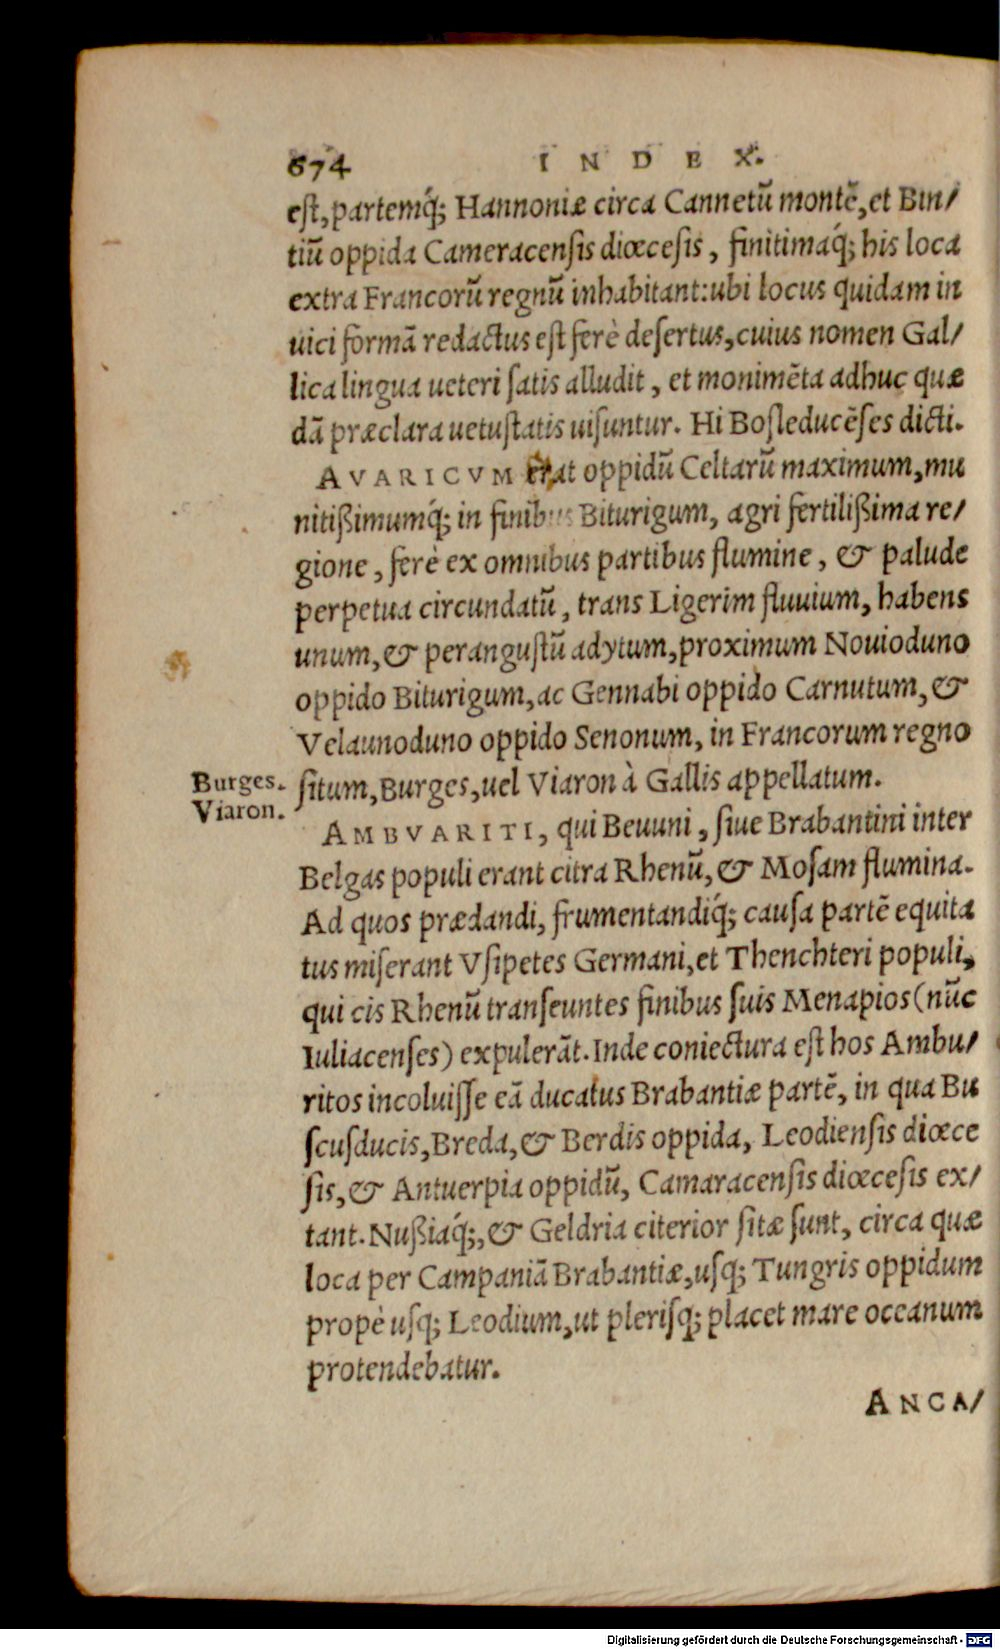 674 INDEX.
eſt, partemq́; Hannoniæ circa Cannetũ montẽ, et Bin/
tiũ oppida Cameracenſis diœceſis, finitimaq́; his loca
extra Francorũ regnũ inhabitant: ubi locus quidam in
uici formã redactus eſt ferè deſertus, cuius nomen Gal/
lica lingua ueteri ſatis alludit, et monimẽta adhuc quæ
dã præclara uetuſtatis uiſuntur. Hi Boſleducẽſes dicti.
AVARICVM erat oppidũ Celtarũ maximum, mu
nitißimumq́; in finibus Biturigum, agri fertilißima re/
gione, ferè ex omnibus partibus flumine, & palude
perpetua circundatũ, trans Ligerim fluuium, habens
unum, & peranguſtũ adytum, proximum Nouioduno
oppido Biturigum, ac Gennabi oppido Carnutum, &
Velaunoduno oppido Senonum, in Francorum regno
Burges. ſitum, Burges, uel Viaron à Gallis appellatum.
Viaron.
AMBVARITI, qui Beuuni, ſiue Brabantini inter
Belgas populi erant citra Rhenũ, & Moſam flumina.
Ad quos prædandi, frumentandiq́; cauſa partẽ equita
tus miſerant Vſipetes Germani, et Thenchteri populi,
qui cis Rhenũ tranſeuntes finibus ſuis Menapios (nũc
Iuliacenſes) expulerãt. Inde coniectura eſt hos Ambu/
ritos incoluiſſe eã ducatus Brabantiæ partẽ, in qua Bu
ſcuſducis, Breda, & Berdis oppida, Leodienſis diœce
ſis, & Antuerpia oppidũ, Camaracenſis diœceſis ex/
tant. Nußiaq́;, & Geldria citerior ſitæ ſunt, circa quæ
loca per Campaniã Brabantiæ, uſq; Tungris oppidum
propè uſq; Leodium, ut pleriſq; placet mare oceanum
protendebatur.
ANCA/
Digitalisierung gefördert durch die Deutsche Forschungsgemeinschaft - DFG